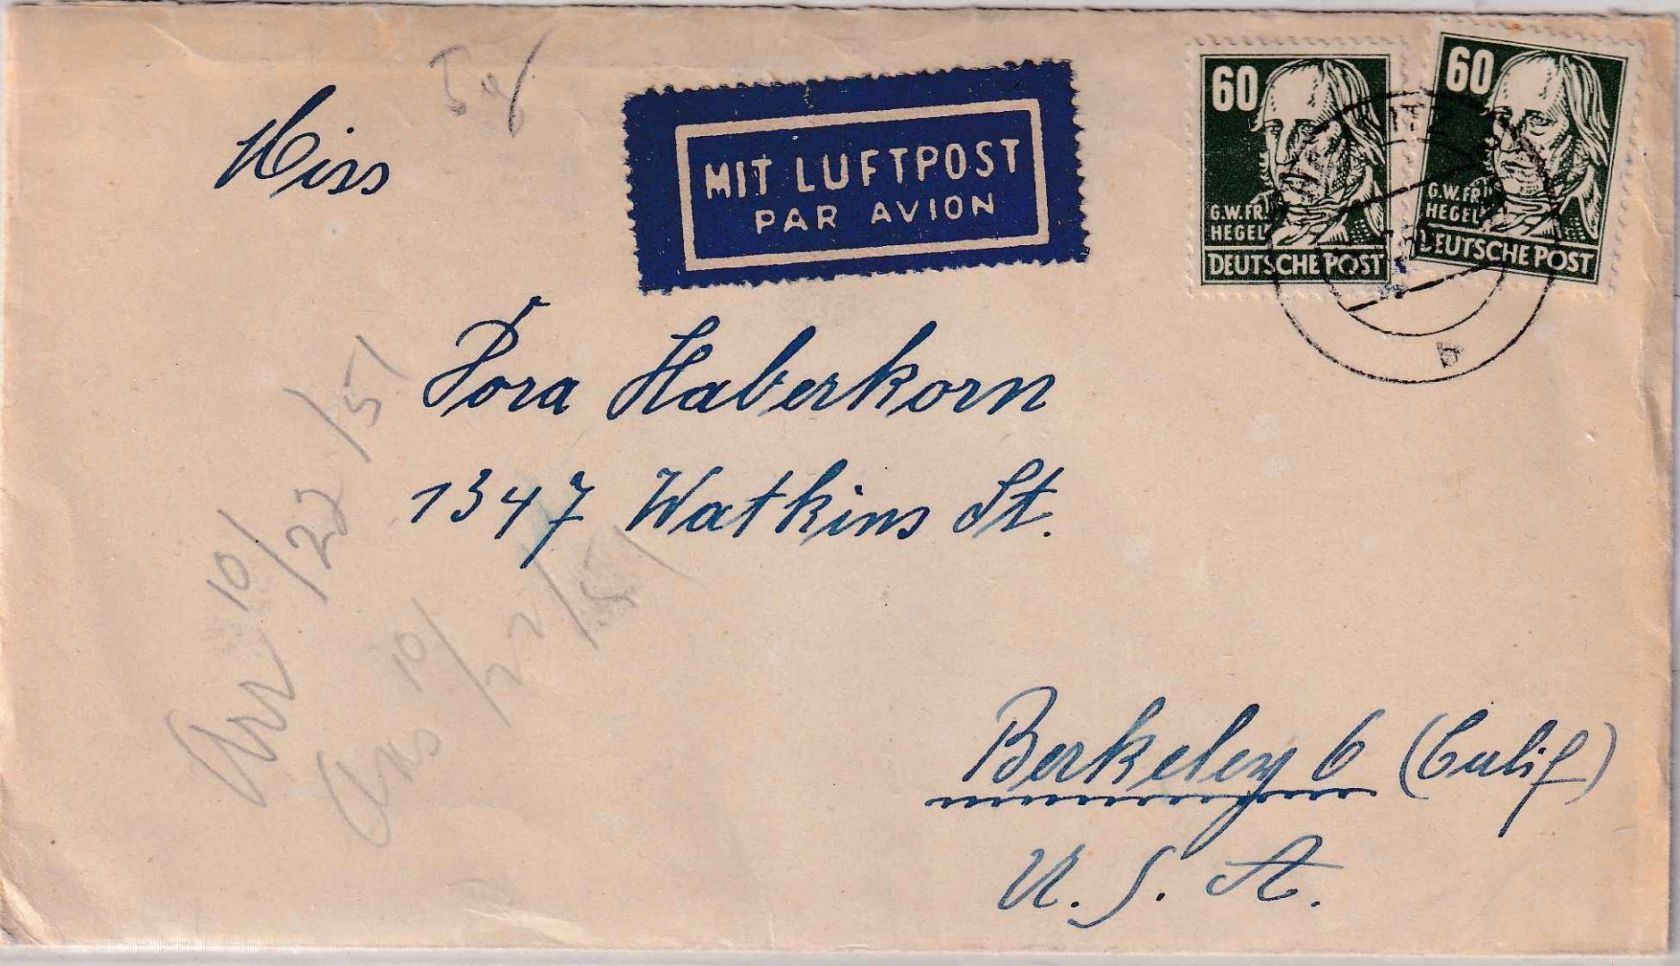 Miss
MIT LUFTPOST
PAR AVION
60
G.W.FR.
HEGEL
DEUTSCHE POST
60
G.W.FR.
HEGEL
DEUTSCHE POST
b
Dora Haberkorn
1347 Watkins St.
Arr 10/22/51
Ans 10/22/51
Berkeley 6 (Calif)
U. S. A.